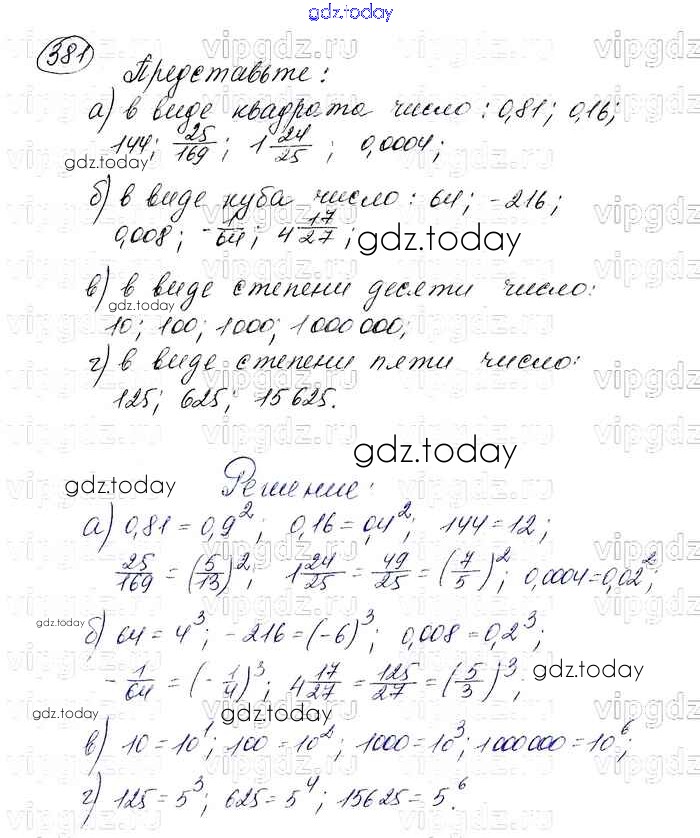 gdz.today
381
Представьте:
а) в виде квадрата число: 0,81; 0,16;
144; 25/169; 1 24/25; 0,0004;
gdz.today
б) в виде куба число: 64; -216;
0,008; -1/64; 4 17/27;
gdz.today
в) в виде степени десяти число:
gdz.today
10; 100; 1000; 1000000;
г) в виде степени пяти число:
125; 625; 15625.
gdz.today
gdz.today
Решение:
а) 0,81 = 0,9²; 0,16 = 0,4²; 144 = 12;
25/169 = (5/13)²; 1 24/25 = 49/25 = (7/5)²; 0,0004 = 0,02²;
gdz.today
б) 64 = 4³; -216 = (-6)³; 0,008 = 0,2³;
-1/64 = (-1/4)³; 4 17/27 = 125/27 = (5/3)³;
gdz.today
gdz.today
gdz.today
в) 10 = 10¹; 100 = 10²; 1000 = 10³; 1000000 = 10⁶;
г) 125 = 5³; 625 = 5⁴; 15625 = 5⁶.
vipgdz.ru